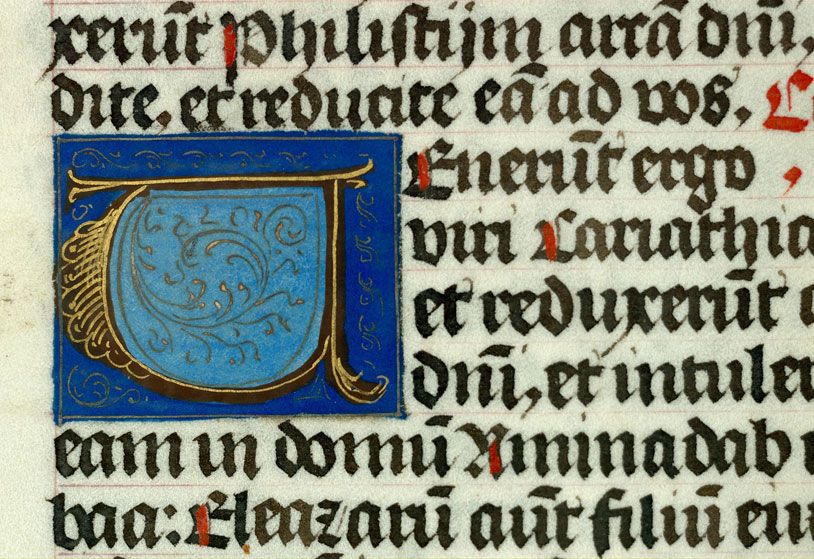 xerūt Philistijm arcā dnī,
dite, et reducite eā ad vos.
VEnerūt ergo
viri Cariathia
et reduxerūt
dnī, et intuler
eam in domū Aminadab
baa: Eleazarū aūt filiū eiu